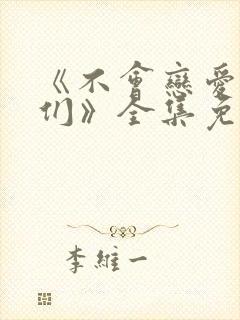 《不會戀愛
们》全集免
李維一